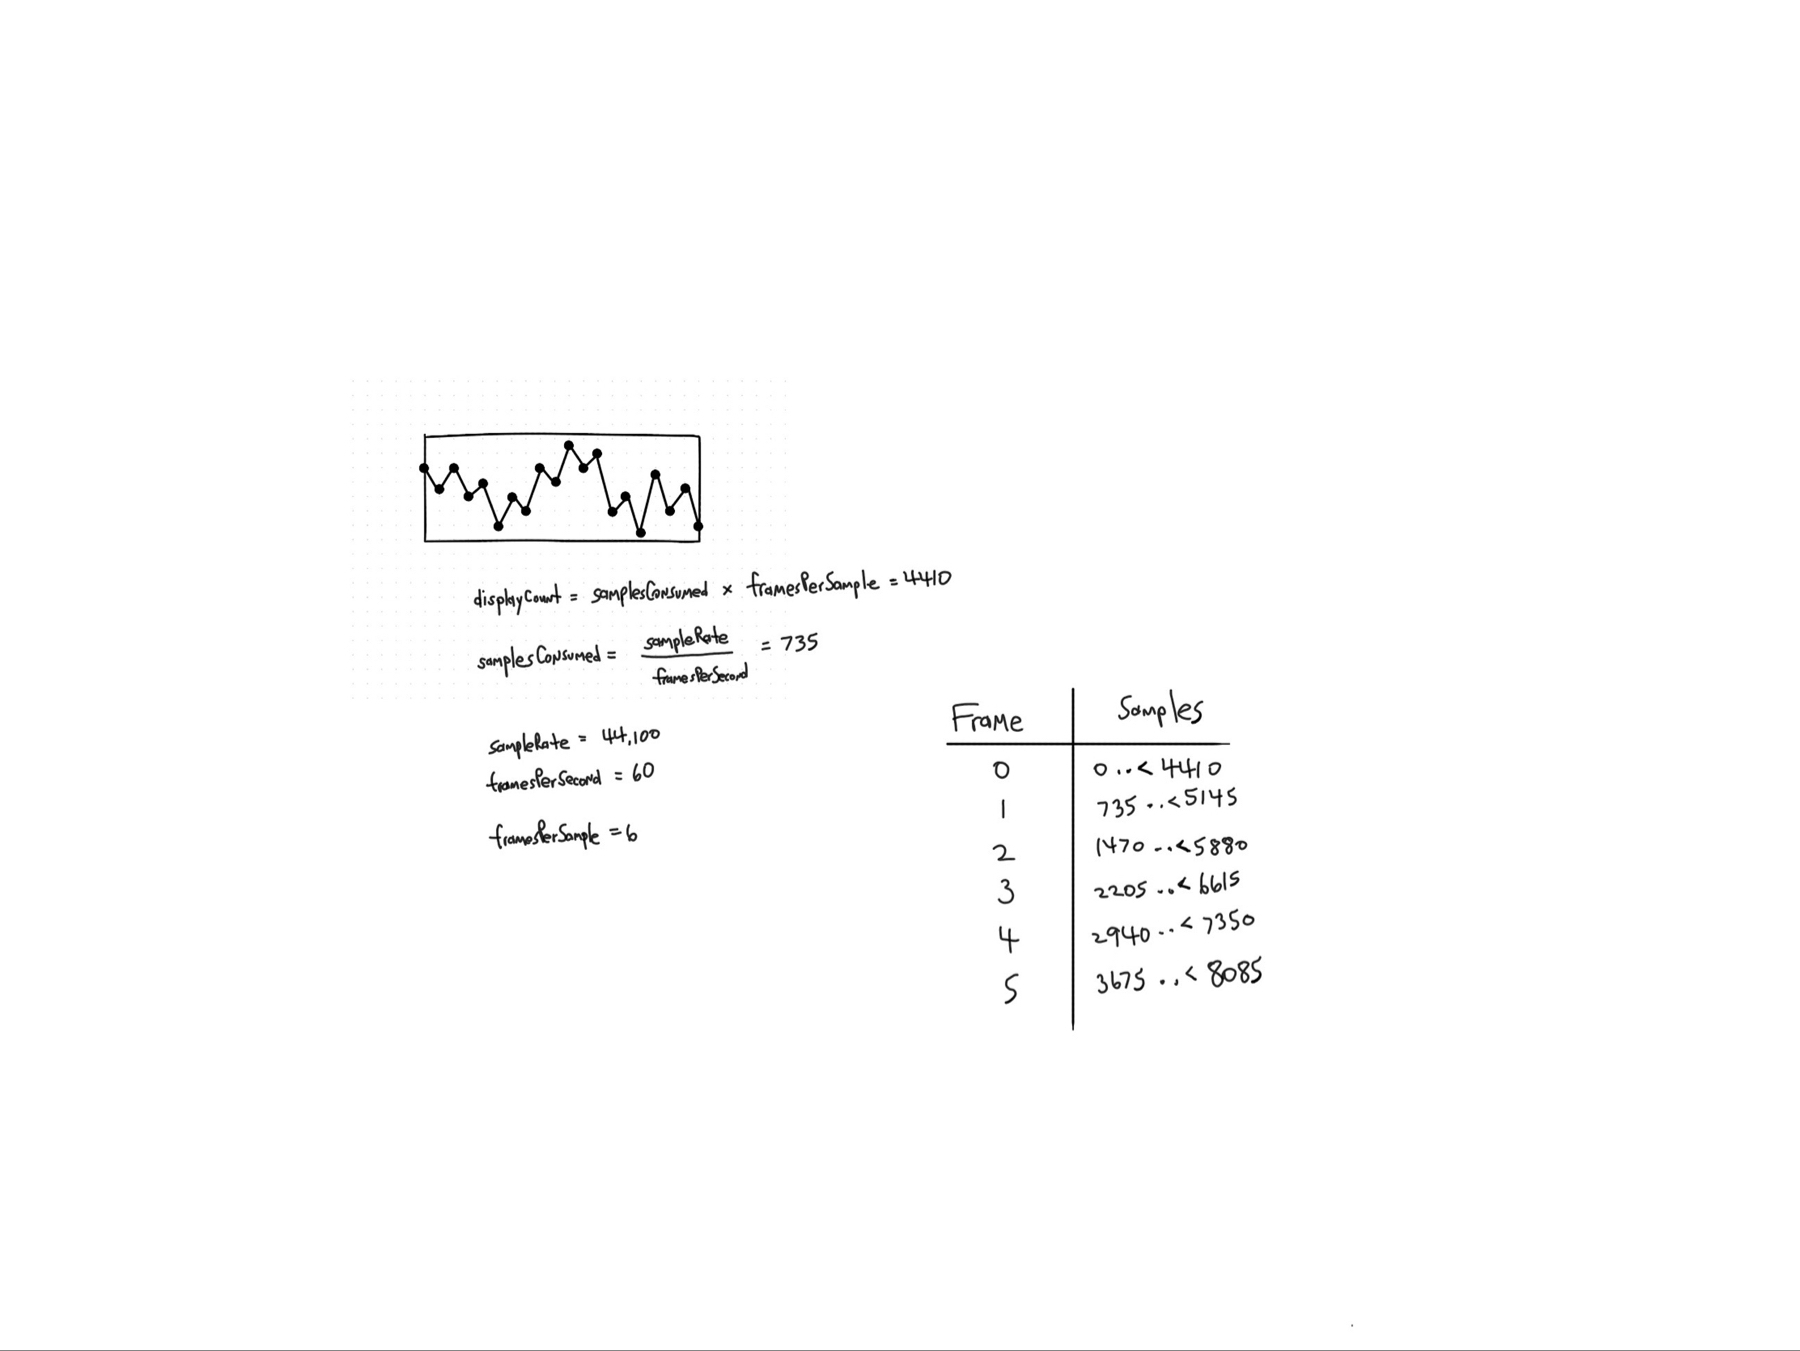 displayCount = samplesConsumed × framesPerSample = 4410
samplesConsumed = sampleRate / framesPerSecond = 735
sampleRate = 44,100
framesPerSecond = 60
framesPerSample = 6
Frame Samples
0 0..<4410
1 735..<5145
2 1470..<5880
3 2205..<6615
4 2940..<7350
5 3675..<8085